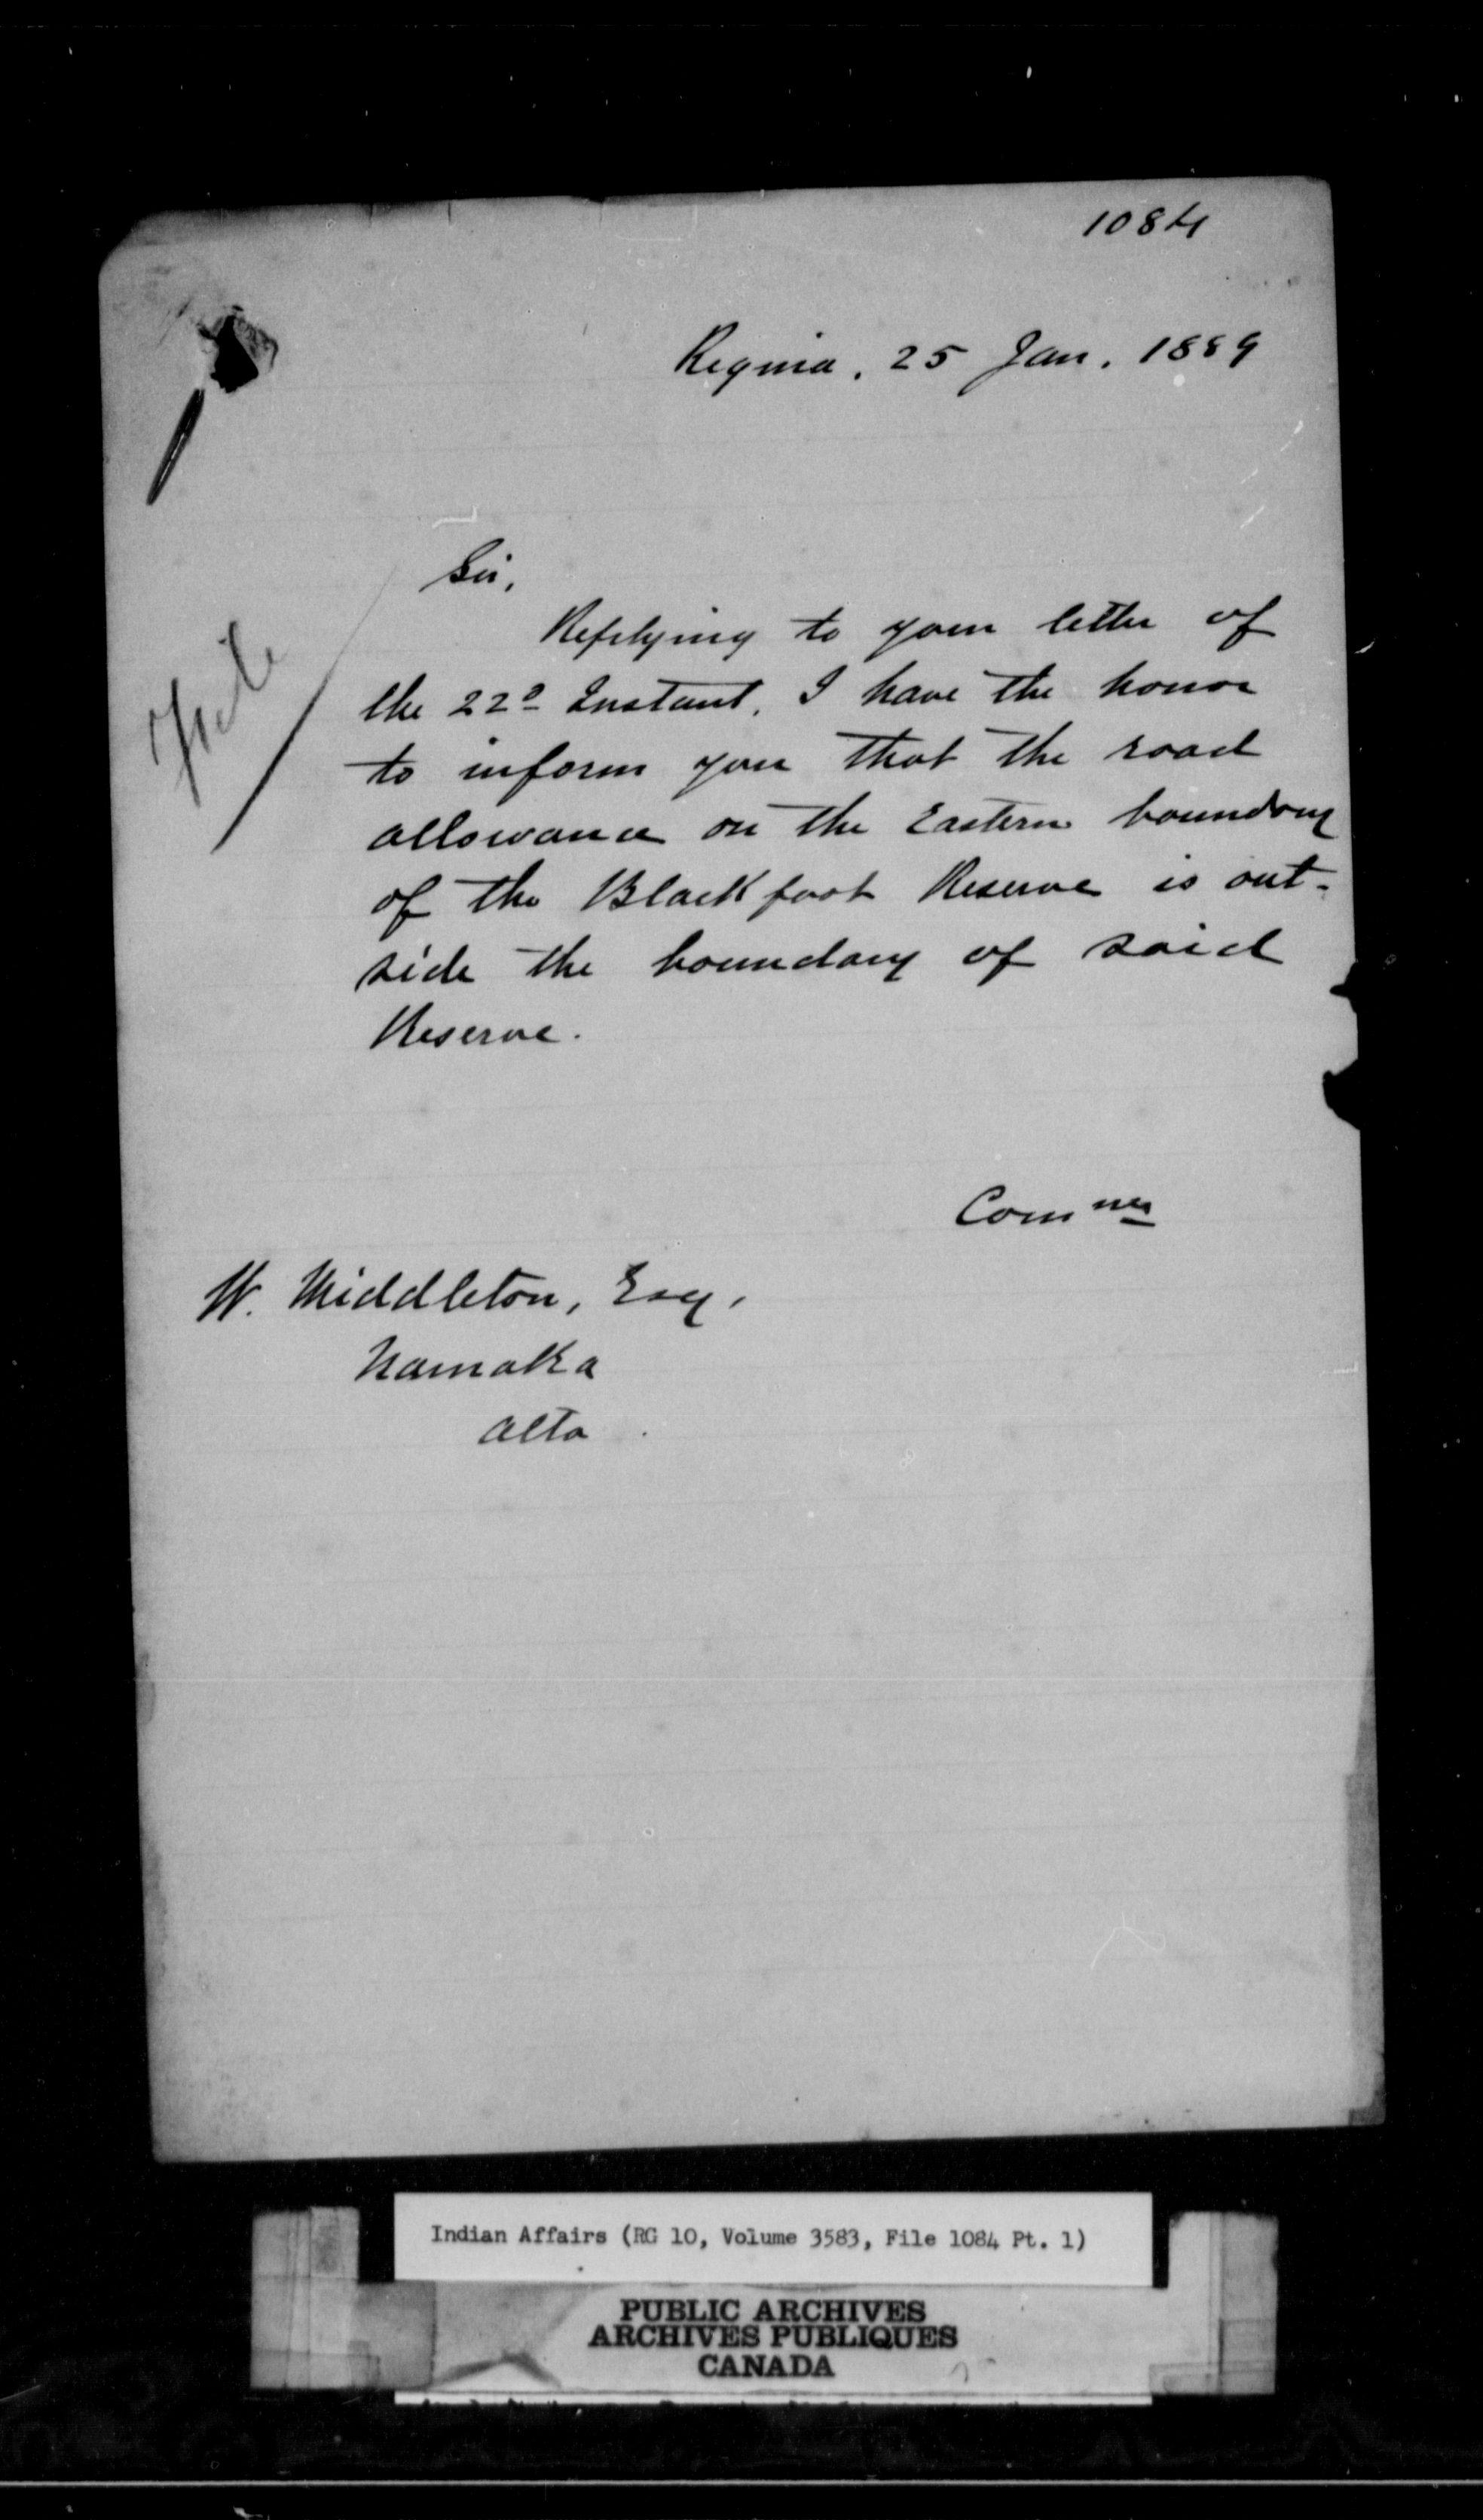 1084
Regina, 25 Jan. 1889
File
Sir,
Replying to your letter of
the 22d Instant, I have the honor
to inform you that the road
allowance on the Eastern boundary
of the Blackfoot Reserve is out-
side the boundary of said
Reserve.
Commr
W. Middleton, Esq.
Namaka
Alta.
Indian Affairs (RG 10, Volume 3583, File 1084 Pt. 1)
PUBLIC ARCHIVES
ARCHIVES PUBLIQUES
CANADA